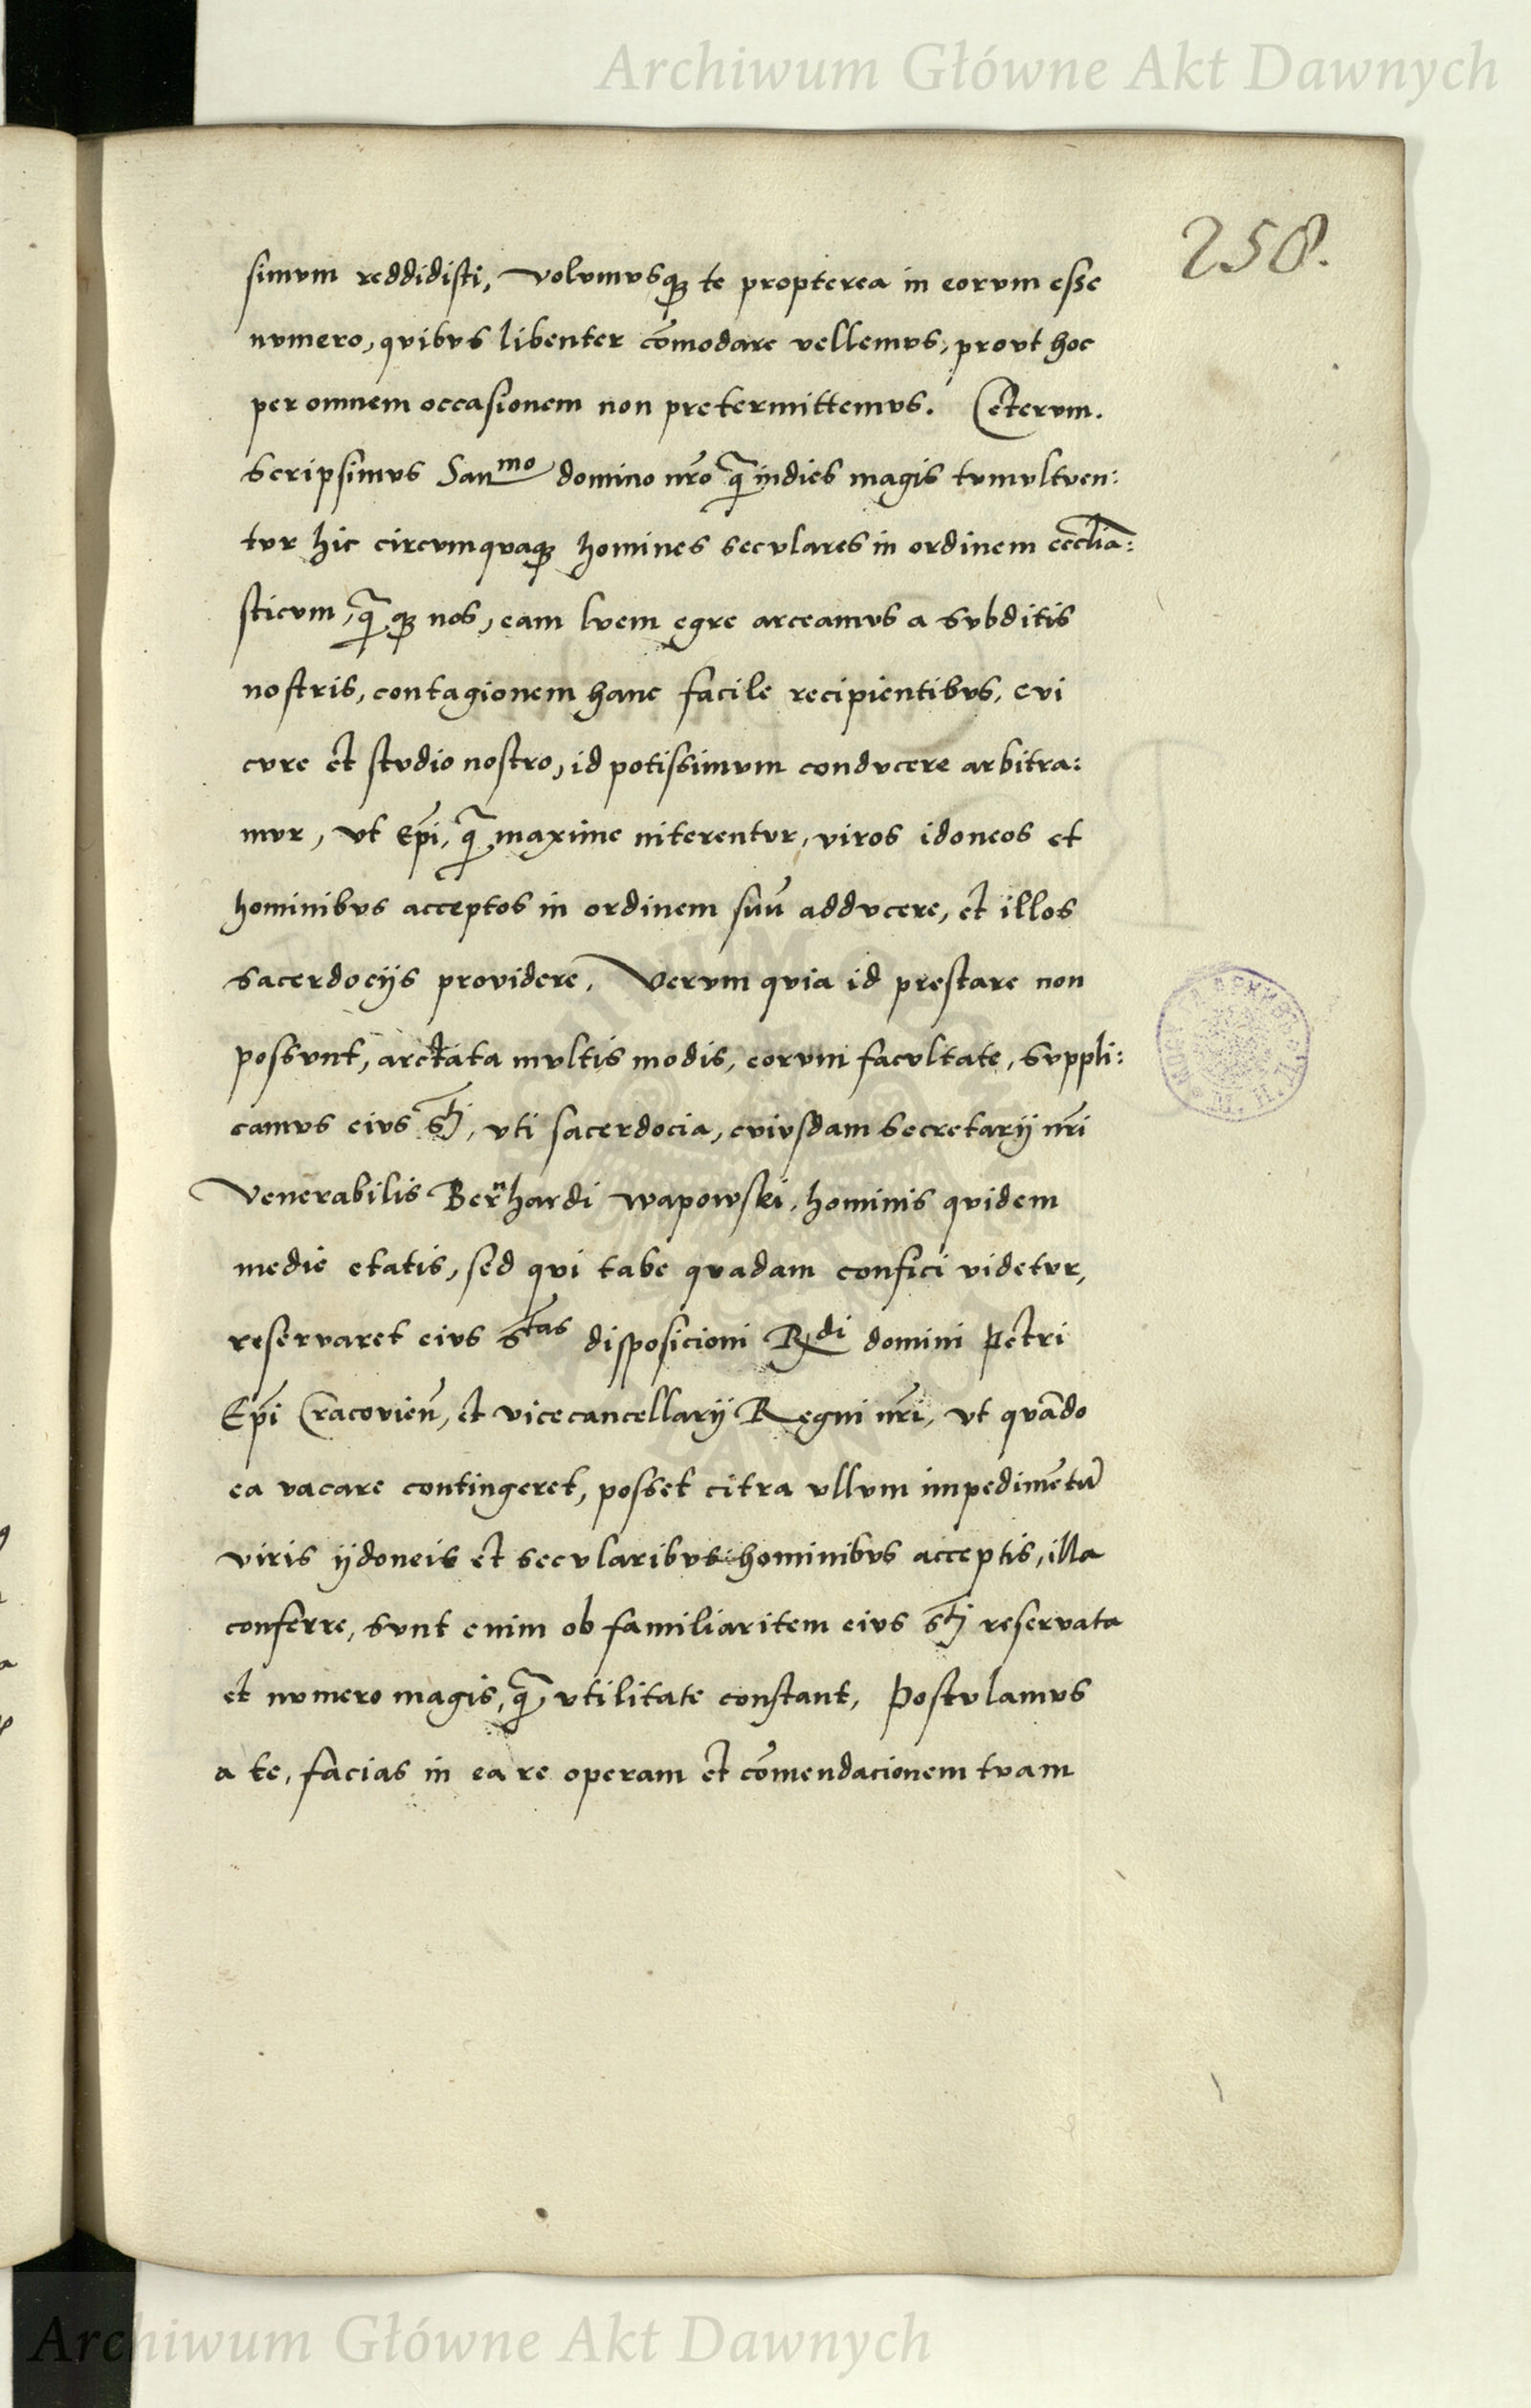 Archiwum Główne Akt Dawnych
258.
simum reddidisti, volumusqȝ te propterea in eorum esse
numero, quibus libenter cōmodare vellemus, prout hoc
per omnem occasionem non pretermittemus. Ceterum.
scripsimus San^mo domino nr̄o q̄ indies magis tumultuen:
tur hic circumquaqȝ homines seculares in ordinem eccl̄ia:
sticum, q̄ qȝ nos, eam luem egre arceamus a subditis
nostris, contagionem hanc facile recipientibus, cui
cure et studio nostro, id potissimum conducere arbitra:
mur, ut Ep̄i, q̄ maxime niterentur, viros idoneos et
hominibus acceptos in ordinem suū adducere, et illos
sacerdocijs providere, Verum quia id prestare non
possunt, arctata multis modis, eorum facultate, suppli:
camus eius S^ti, uti sacerdocia, cuiusdam secretarij nr̄i
Venerabilis Bernhardi wapowski, hominis quidem
medie etatis, sed qui tabe quadam confici videtur,
reservaret eius S^tas disposicioni R^di domini Petri
Ep̄i Cracovien̄, et vicecancellarij Regni nr̄i, ut quādo
ea vacare contingeret, posset citra ullum impedimētū
viris ijdoneis et secularibus hominibus acceptis, illa
conferre, sunt enim ob familiaritem eius S^ti reservata
et numero magis, q̄ utilitate constant, Postulamus
a te, facias in ea re operam et cōmendacionem tuam
Archiwum Główne Akt Dawnych